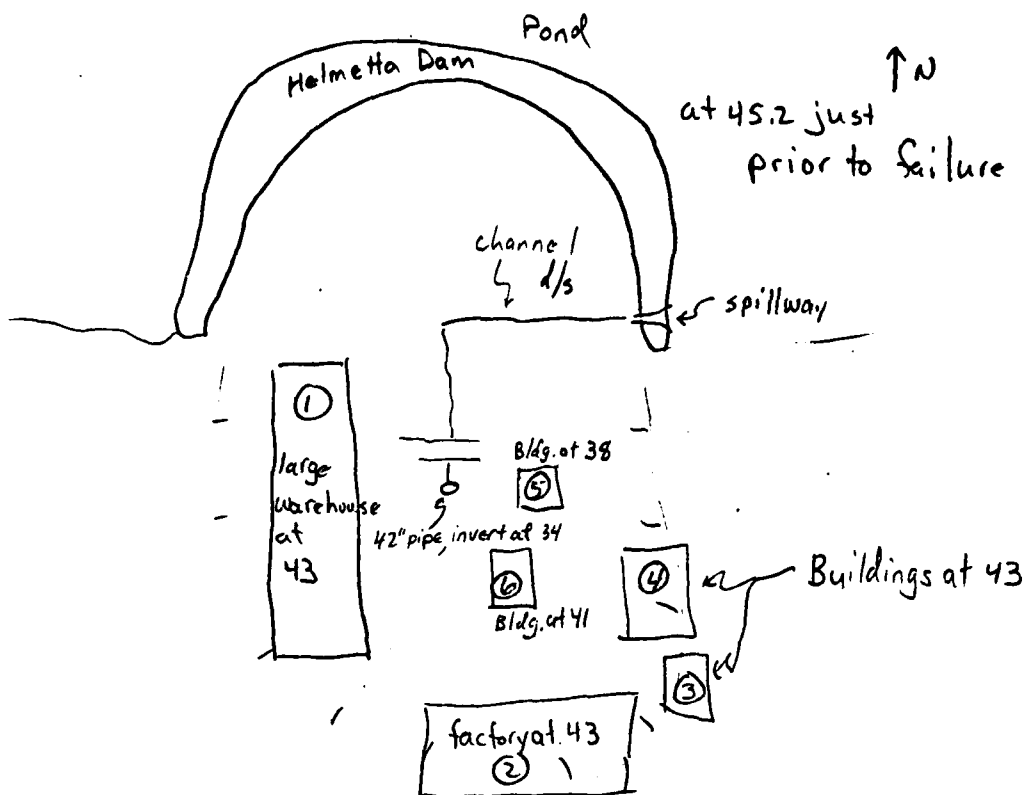 Pond
Helmetta Dam
↑ N
at 45.2 just
prior to failure
channel
d/s
spillway
①
large
warehouse
at
43
Bldg. at 38
⑤
42" pipe, invert at 34
⑥
Bldg. at 41
④
Buildings at 43
③
factory at 43
②